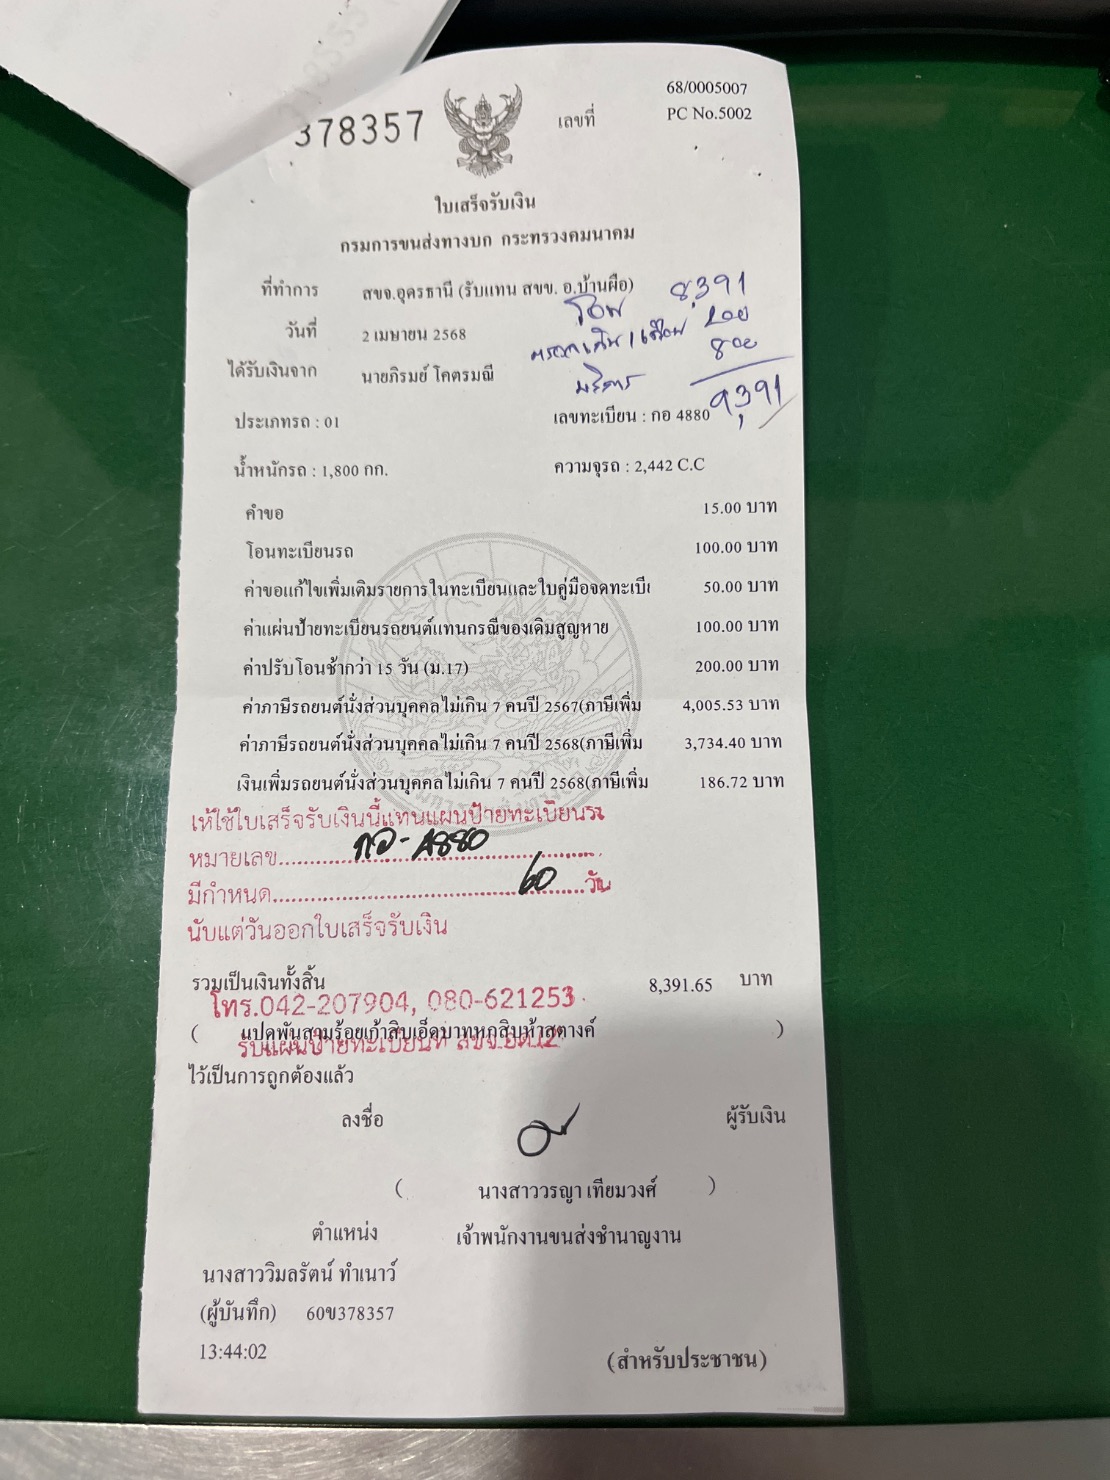 68/0005007
378357
เลขที่
PC No.5002
ใบเสร็จรับเงิน
กรมการขนส่งทางบก กระทรวงคมนาคม
ที่ทำการ สขจ.อุดรธานี (รับแทน สขข. อ.บ้านผือ)
โอน 8,391
วันที่ 2 เมษายน 2568
200
800
ได้รับเงินจาก นายภิรมย์ โคตรมณี
บริการ 9,391
ประเภทรถ : 01 เลขทะเบียน : กอ 4880
น้ำหนักรถ : 1,800 กก. ความจุรถ : 2,442 C.C
คำขอ 15.00 บาท
โอนทะเบียนรถ 100.00 บาท
ค่าขอแก้ไขเพิ่มเติมรายการในทะเบียนและใบคู่มือจดทะเบี 50.00 บาท
ค่าแผ่นป้ายทะเบียนรถยนต์แทนกรณีของเดิมสูญหาย 100.00 บาท
ค่าปรับโอนช้ากว่า 15 วัน (ม.17) 200.00 บาท
ค่าภาษีรถยนต์นั่งส่วนบุคคลไม่เกิน 7 คนปี 2567(ภาษีเพิ่ม 4,005.53 บาท
ค่าภาษีรถยนต์นั่งส่วนบุคคลไม่เกิน 7 คนปี 2568(ภาษีเพิ่ม 3,734.40 บาท
เงินเพิ่มรถยนต์นั่งส่วนบุคคลไม่เกิน 7 คนปี 2568(ภาษีเพิ่ม 186.72 บาท
ให้ใช้ใบเสร็จรับเงินนี้แทนแผ่นป้ายทะเบียนรถ
หมายเลข กอ-4880
มีกำหนด 60 วัน
นับแต่วันออกใบเสร็จรับเงิน
รวมเป็นเงินทั้งสิ้น 8,391.65 บาท
โทร.042-207904, 080-621253
( แปดพันสามร้อยเก้าสิบเอ็ดบาทหกสิบห้าสตางค์ )
รับแผ่นป้ายทะเบียนที่ สขจ.
ไว้เป็นการถูกต้องแล้ว
ลงชื่อ ผู้รับเงิน
( นางสาววรญา เทียมวงศ์ )
ตำแหน่ง เจ้าพนักงานขนส่งชำนาญงาน
นางสาววิมลรัตน์ ทำเนาว์
(ผู้บันทึก) 60ข378357
13:44:02
(สำหรับประชาชน)